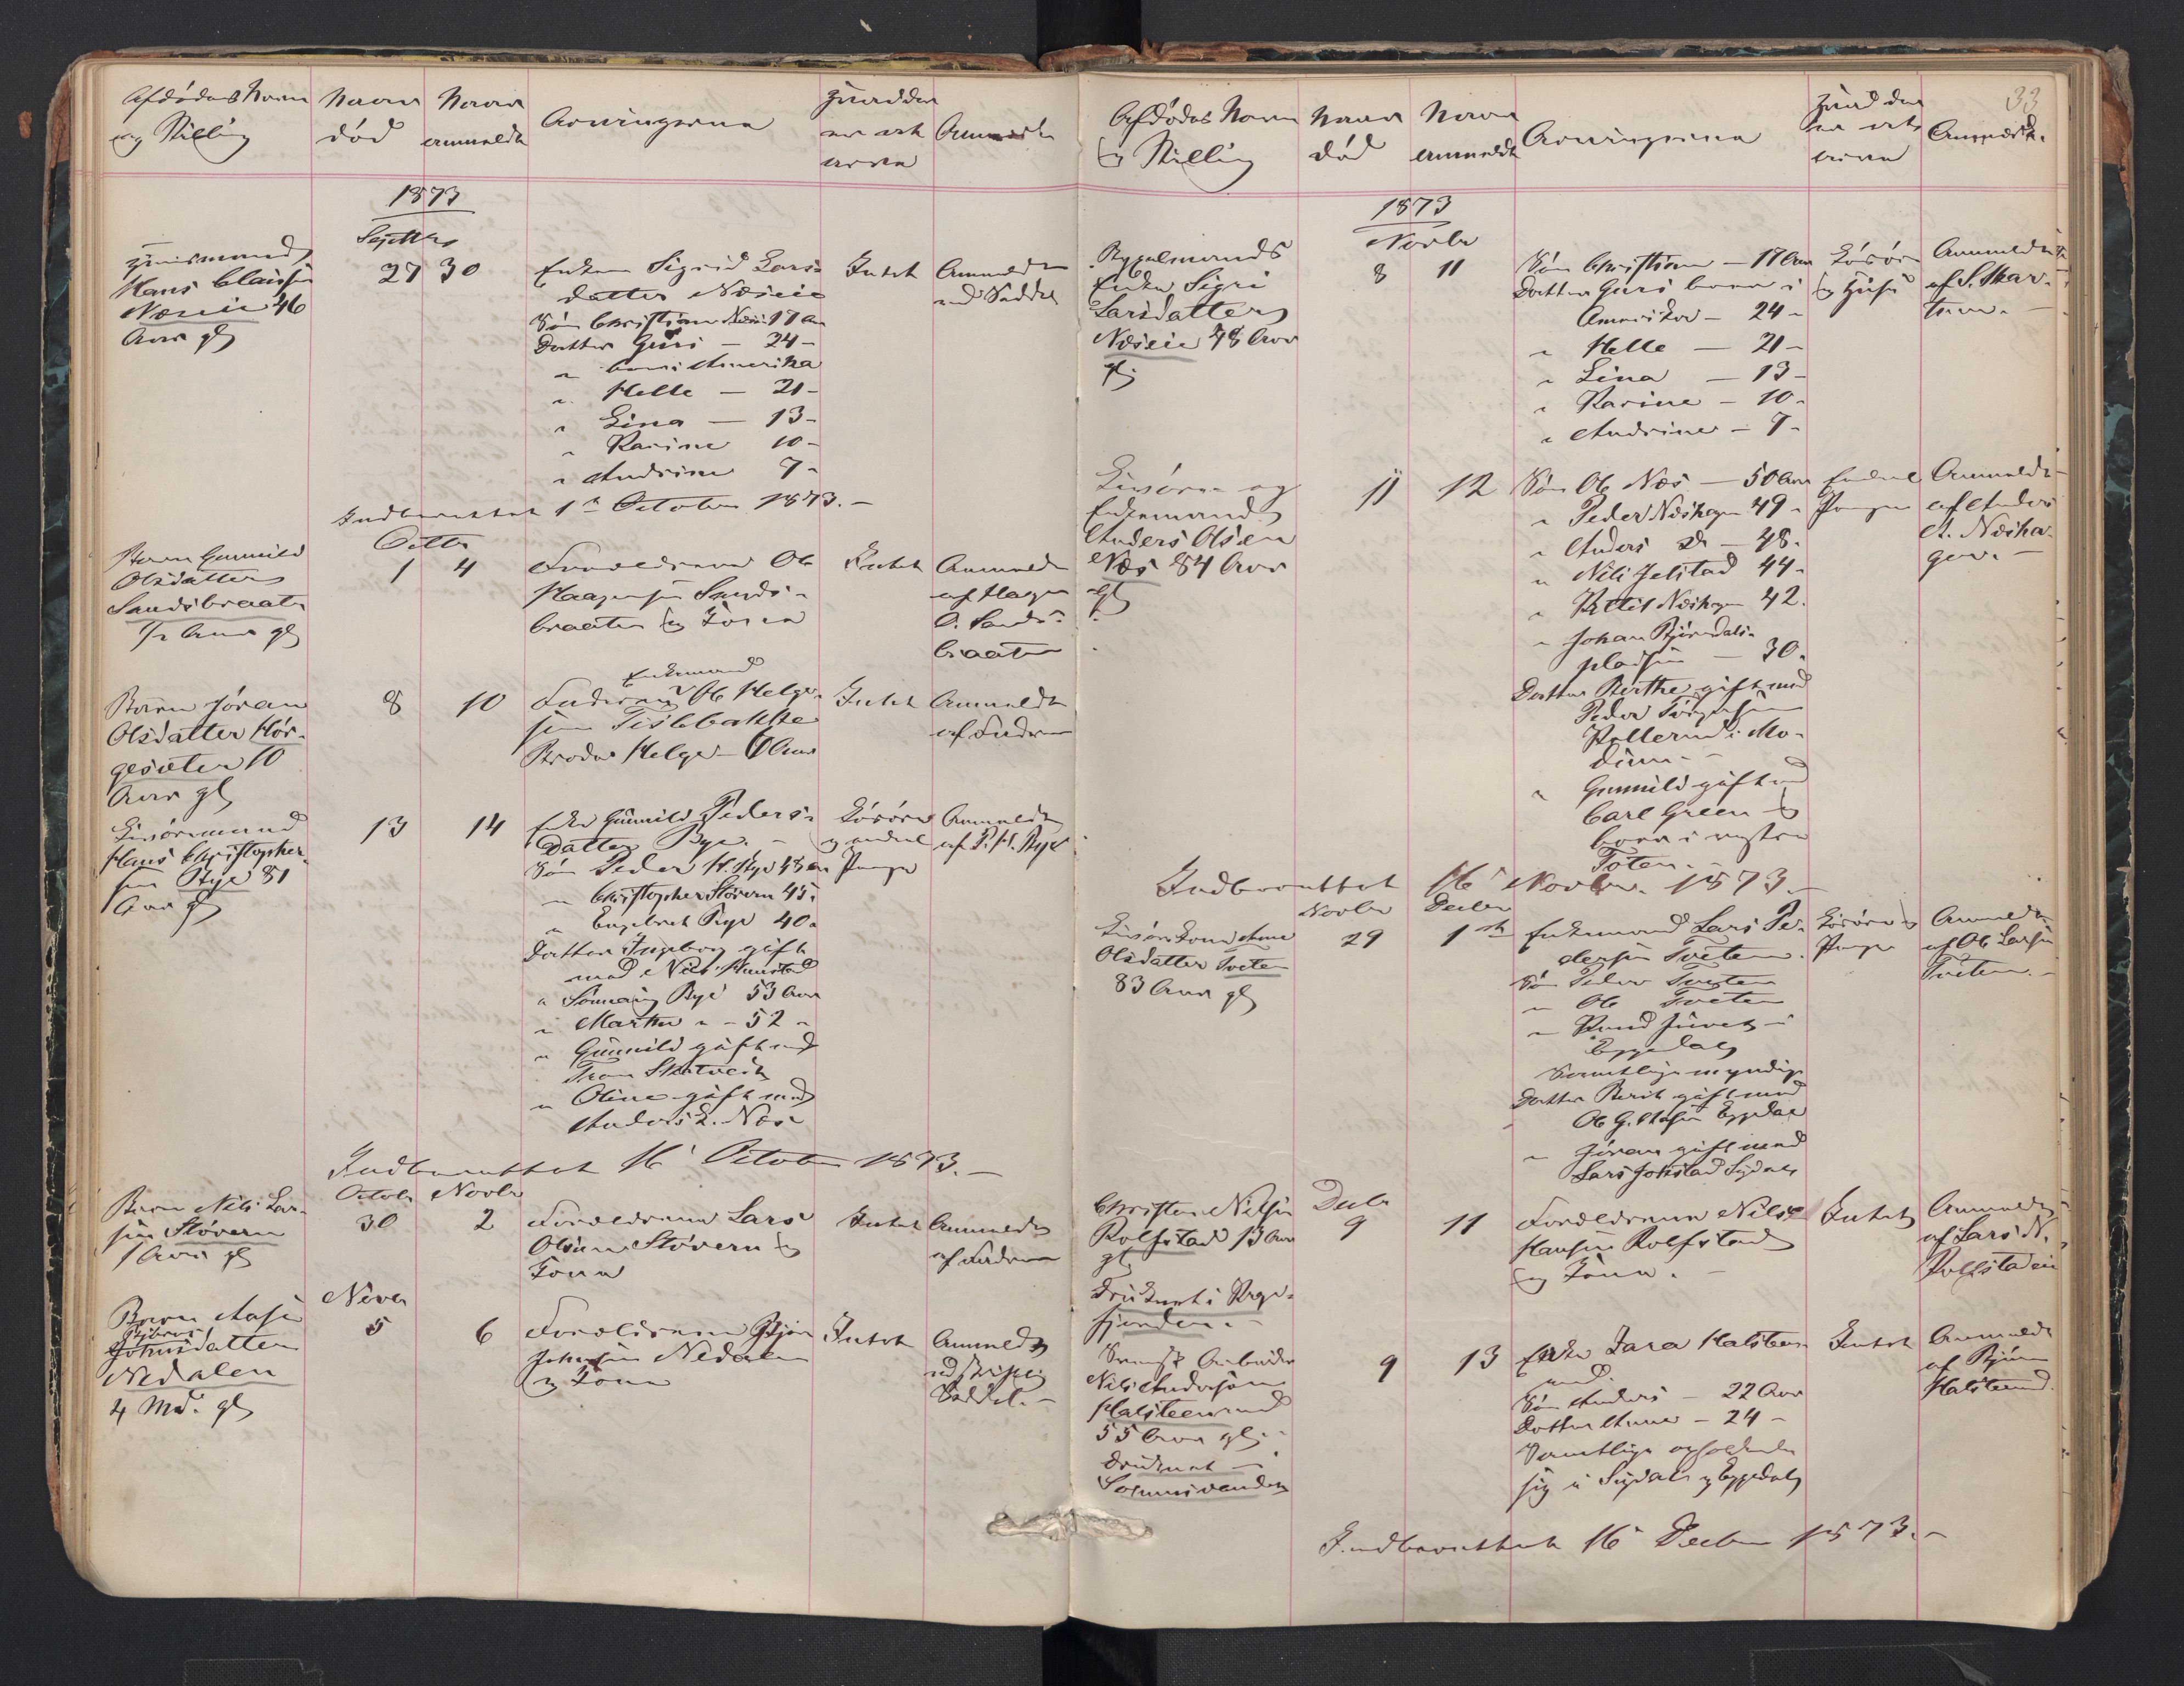 Afdødes Navn
og Stilling
Naar
død
Naar
anmeldt
Arvingerne
Hvad der
er at
arve
Anmærk.
1873
Septbr
Huusmand
Hans Clausen
Næseie 46
Aar gl
27 30
Enken Sigrid Lars-
datter Næseie
Søn Christian Næseie 17 Aar
Datter Guri — 24 —
" boer i Amerika
" Helle — 21 —
" Lina — 13 —
" Karine 10 —
" Andrine 7 —
Intet
Anmeldt
ved Seddel
Indberettet 1ste October 1873. —
Octbr
Barn Gunnild
Olsdatter
Sandsbraaten
1/2 Aar gl
1 4
Forældrene Ole
Haagensen Sands-
braaten og Kone
Intet
Anmeldt
af Hagen
O. Sands-
braaten
Barn Jøran
Olsdatter Hør-
gesæter 10
Aar gl
8 10
Enkemand
Faderen Ole Helge-
sen Tislebakke
Broder Helge — Aar
Intet
Anmeldt
af Faderen
Livøremand
Hans Christopher-
sen Bye 81
Aar gl
13 14
Enke Gunnild Peders-
datter Bye. —
Søn Peder H. Bye 48 Aar
" Christopher Støvern 45 "
" Engebret Bye 40 "
Datter Ingeborg gift
med Nils Kunstad
" Sønnaug Bye 53 Aar
" Marthe " — 52 "
" Gunnild gift med
Tron Skatvedt
" Oline gift med
Anders L. Næs
Løsøre
og endeel
Penge
Anmeldt
af P. H. Bye
Indberettet 16 October 1873. —
Octobr Novbr
Barn Nils Lar-
sen Støvern
1 Aar gl
30 2
Forældrene Lars
Olsen Støvern og
Kone
Intet
Anmeldt
af Faderen
Novbr
Barn Aase
Bjørns
Johnsdatter
Nedalen
4 Md. gl
5 6
Forældrene Bjørn
Johnsen Nedalen
og Kone
Intet
Anmeldt
ved skriftlig
Seddel. —
33
Afdødes Navn
og Stilling
Naar
død
Naar
anmeldt
Arvingerne
Hvad der
er at
arve
Anmærk.
1873
Novbr
Bygselmands
Enke Sigri
Larsdatter
Næseie 48 Aar
gl
8 11
Søn Christian — 17 Aar
Datter Guri boer i
Amerika — 24 —
" Helle — 21 —
" Lina — 13 —
" Karine — 10 —
" Andrine — 7 —
Løsøre
og Huse
Anmeldt
af S. Skar-
Livøre- og
Enkemand
Anders Olsen
Næs 84 Aar
gl
11 12
Søn Ole Næs — 50 Aar
" Peder Næshagen 49 —
" Anders do — 48 —
" Nils Jelstad 44 —
" Kittil Næshagen 42.
" Johan Bjørndals-
pladsen — 30 —
Datter Berthe gift med
Peder Torgersen
Kollerud i Mo-
dum. —
" Gunnild gift med
Carl Green og
boer i vestre
Toten. —
Endeel
Penge
Anmeldt
af Anders
A. Næsha-
gen. —
Indberettet 16 Novbr. 1873. —
Novbr Decbr
Livørekone Anne
Olsdatter Tveten
83 Aar gl
29 1ste
Enkemand Lars Pe-
dersen Tveten.
Søn Peder Tveten
" Ole Tveten
" Knud Juvet i
Eggedal
Samtlige myndige
Datter Berit gift med
Ole G. Eggedal
" Jøran gift med
Lars Jokstad Sigdal
Løsøre og
Penge
Anmeldt
af Ole Larsen
Tveten. —
Decbr
Christian Nilsen
Rolfstad 13 Aar
gl
druknet i Kryds-
fjorden. —
9 11
Forældrene Nils
Hansen Rolfstad
og Kone. —
Intet
Anmeldt
af Lars N.
Rolfstadeie
Svensk Arbeider
Nils Andersson
Halsteenrud
55 Aar gl. —
druknet i
Soneren­vandet
9 13
Enke Kara Halsteen-
rud.
Søn Anders — 22 Aar
Datter Anne — 24 —
Samtlige opholder
sig i Sigdal og Eggedal
Intet
Anmeldt
af Bjørn
Halsteenrud.
Indberettet 16 Decbr 1873. —